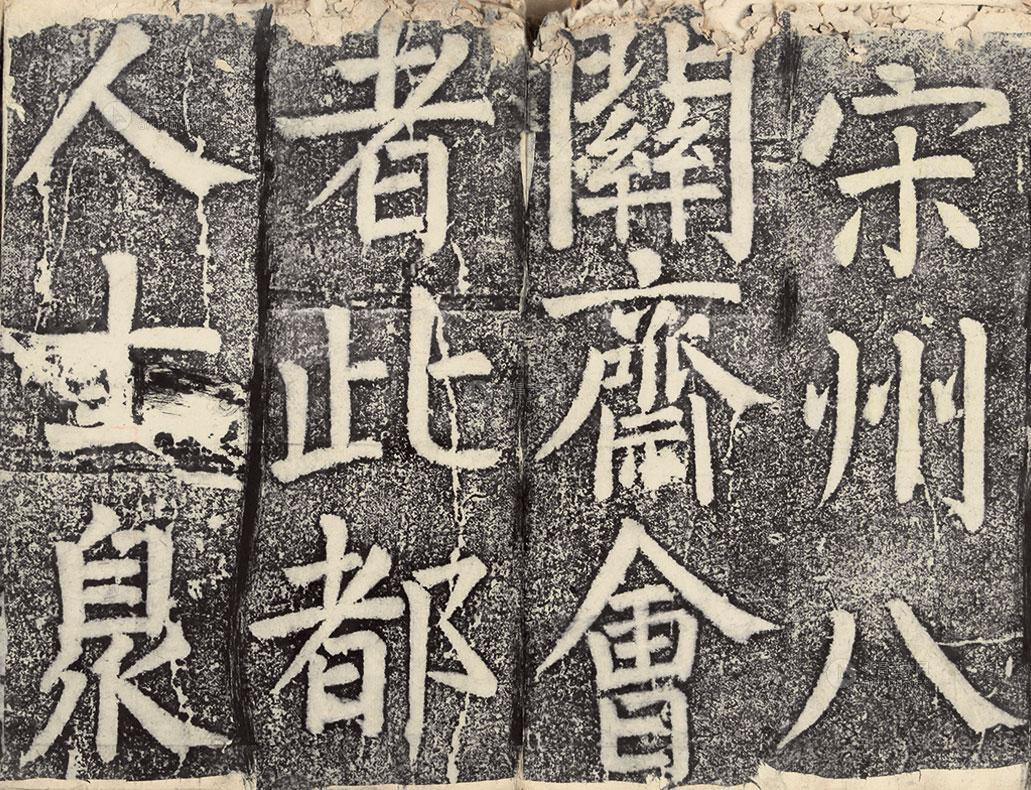 宋州八
關齋會
者此都
人士臮